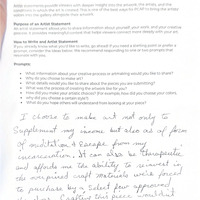 Artist statements provide viewers with deeper insight into the artwork, the artist, and the
Purpose of an Artist Statement
An artist statement allows you to share information about yourself, your work, and your creative
process. It provides meaningful context that helps viewers connect more directly with your art.
How to Write and Artist Statement
If you already know what you'd like to write, go ahead! If you need a starting point or prefer a
prompt, consider the ideas below. We recommend responding to one or two prompts that
resonate with you.
Prompts:
• What information about your creative process or artmaking would you like to share?
• Why do you choose to make art?
• What details would you like to share about the pieces you are submitting?
• What was the inspiration for the artwork?
• How did you make your artistic choices? (For example: how did you choose the colors, why
did you choose a certain style?)
• What do you hope others will understand from looking at your piece?
I choose to make art not only to
supplement my income but also as a form
of meditation & escape from my
incarceration. It can also be therapeutic
and affords me the ability to reinvest in
the overpriced craft materials we're forced
to purchase by a select few approved
Crafting this piece